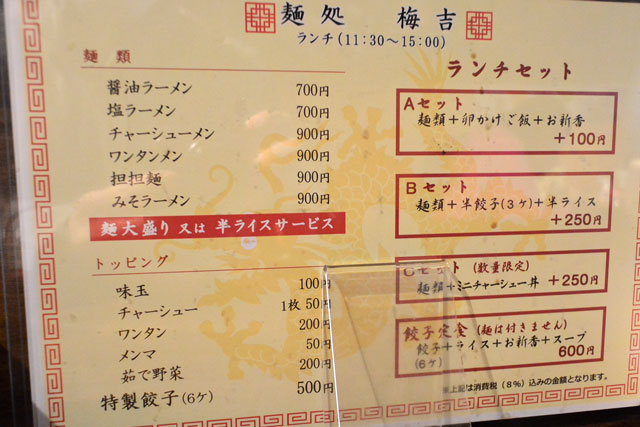 麺処 梅吉
ランチ(11:30～15:00)
麺類
醤油ラーメン 700円
塩ラーメン 700円
チャーシューメン 900円
ワンタンメン 900円
担担麺 900円
みそラーメン 900円
麺大盛り 又は 半ライスサービス
トッピング
味玉 100円
チャーシュー 1枚 50円
ワンタン 200円
メンマ 50円
茹で野菜 200円
特製餃子(6ケ) 500円
ランチセット
Aセット
麺類＋卵かけご飯＋お新香
＋100円
Bセット
麺類＋半餃子(3ケ)＋半ライス
＋250円
Cセット (数量限定)
麺類＋ミニチャーシュー丼 ＋250円
餃子定食 (麺は付きません)
餃子＋ライス＋お新香＋スープ
(6ケ) 600円
※上記は消費税(8%)込みの金額となります。